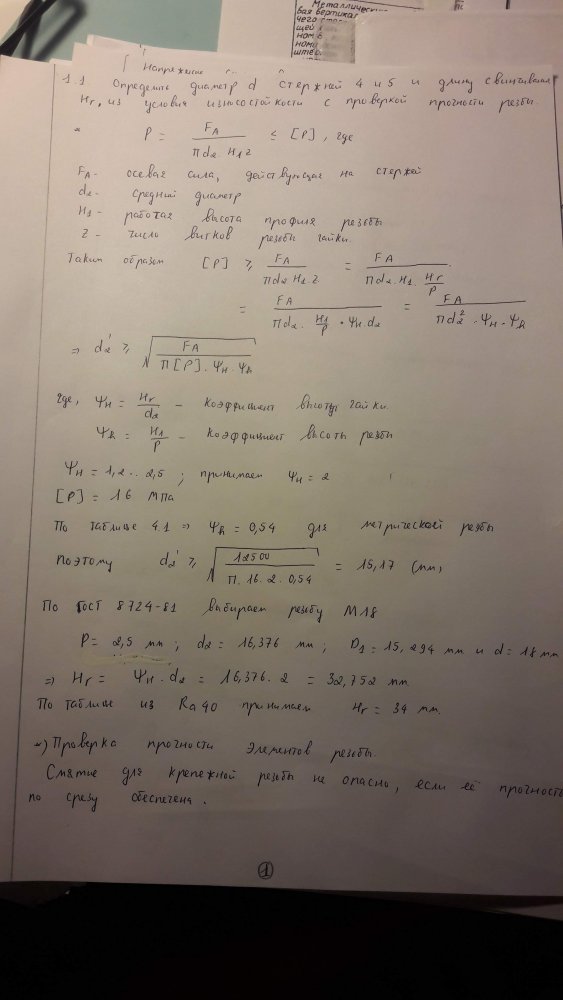 Металличес
вая вертикал
чего
щей
ном
номи
штев
Напряжение
1.1. Определить диаметр d стержней 4 и 5 и длину свинчивания
Hг, из условия износостойкости с проверкой прочности резьбы.
P = FA / (π d2 · H1 z) ≤ [P], где
FA - осевая сила, действующая на стержей
d2 - средний диаметр
H1 - работая высота профиля резьбы
z - число витков резьбы гайки.
Таким образом [P] ≥ FA / (π d2 H1 z) = FA / (π d2 · H1 · Hг/P)
= FA / (π d2 · H1/P · Ψн · d2) = FA / (π d2² · Ψн · Ψh)
⇒ d2' ≥ √(FA / (π [P] · Ψн · Ψh))
где, Ψн = Hг/d2 - коэффициент высоты гайки.
Ψh = H1/P - коэффициент высоты резьбы
Ψн = 1,2 .. 2,5 ; принимаем Ψн = 2
[P] = 16 МПа
По таблице 4.1 ⇒ Ψh = 0,54 для метрической резьбы
Поэтому d2' ≥ √(12500 / (π · 16 · 2 · 0,54)) = 15,17 (мм)
По ГОСТ 8724-81 выбираем резьбу М18
P = 2,5 мм ; d2 = 16,376 мм ; D1 = 15,294 мм и d = 18 мм
⇒ Hг = Ψн · d2 = 16,376 · 2 = 32,752 мм.
По таблице из Ra40 принимаем Hг = 34 мм.
*) Проверка прочности элементов резьбы.
Смятие для крепежной резьбы не опасно, если её прочность
по срезу обеспечена.
1